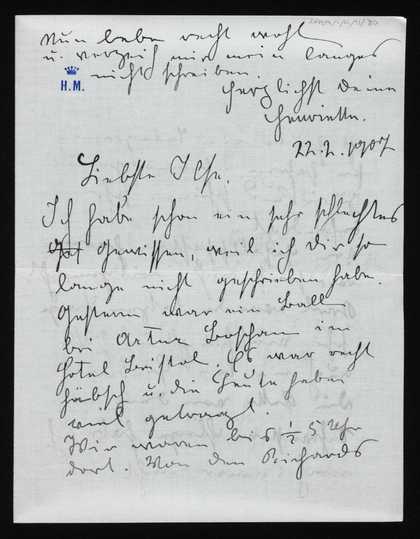 Nun lebe recht wohl
u. verzeih mir mein langes
nicht schreiben.
H.M.
Herzlichst Deine
Henriette.
22.2.1907
Liebste Ilse.
Ich habe schon ein sehr schlechtes
Gewissen, weil ich dir so
lange nicht geschrieben habe.
Gestern war ein Ball
bei Artur Boschan im
Hotel Bristol. Es war recht
hübsch u. die Leute haben
viel getanzt.
Wir waren bis ½ 5 Uhr
dort. Von den Richards